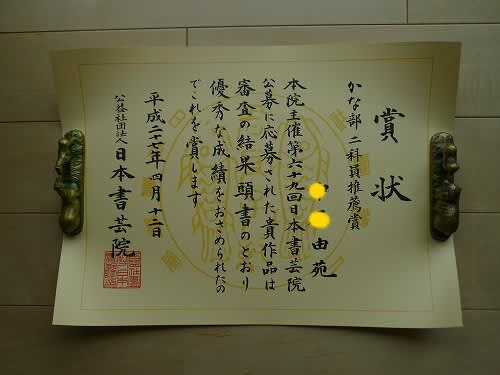 賞状
かな部 二科員推薦賞
由苑
本院主催第六十九回日本書芸院
公募に応募された貴作品は
審査の結果頭書のとおり
優秀な成績をおさめられたの
でこれを賞します
平成二十七年四月十二日
公益社団法人 日本書芸院